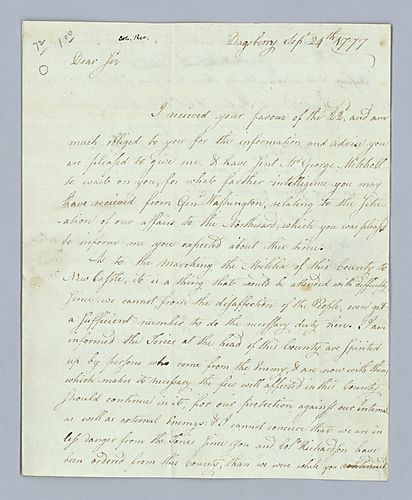 72
0
1.00
Col. Rev.
Dagsberry Sep. 24th 1777
Dear Sir
I received your favour of the 22. and am
much obliged to you for the information and advice you
are pleas'd to give me. & have sent Mr. George Mitchell
to wait on you, for what farther intelligence you may
have received from Genl. Washington, relating to the situ-
ation of our affairs to the Northward, which you was pleas'd
to inform me you expected about this time.
As to the marching the Militia of this County to
New Castle, it is a thing that would be attended with difficulty
since we cannot from the disaffection of the People, even get
a sufficient number to do the necessary duty here. I am
informed the Tories at the head of this County are spirited
up by persons who come from the Enemy, & are now with them
which makes it necessary the few well affected in this County
should continue in it, for our protection against our Internal
as well as external Enemys: & I cannot conceive that we are in
less danger from the Tories since you and Colo. Richardson have
been ordered from this County, than we were while you continued